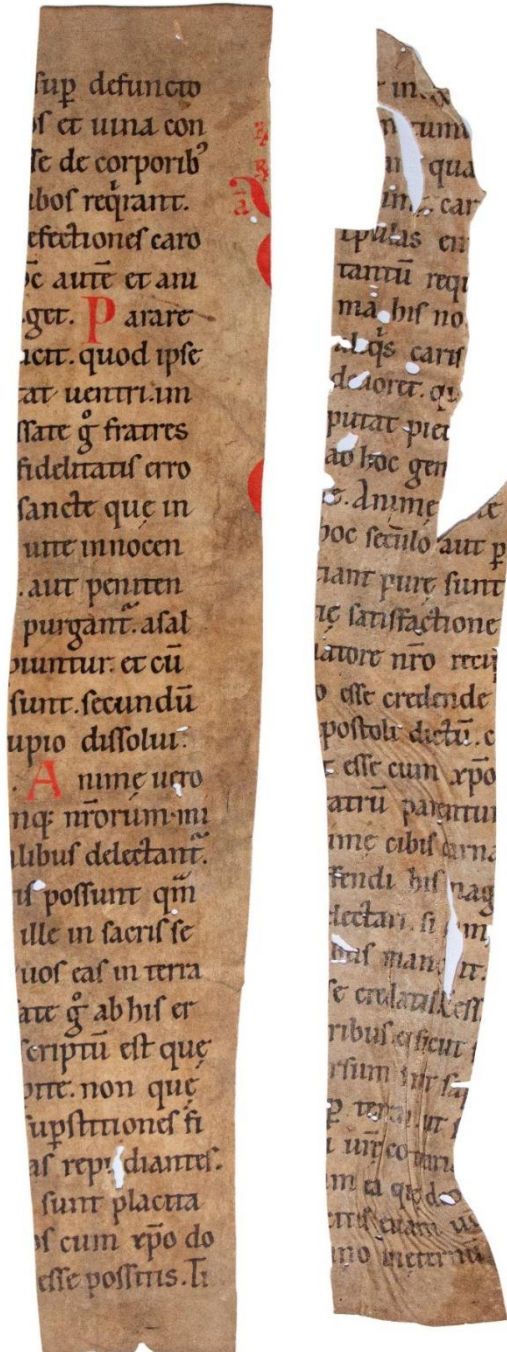 sup defuncto
os et uina con
se de corporib᾿
ibos reqͥrant.
efectiones caro
oc̄ autē et aui
get. Parare
ucit. quod ipse
tat uentri. im
ssate gͦ fratres
fidelitatis erro
sancte quę in
uite innocen
. aut peniten
purgant᷑. a sal
piuntur. et cū
sunt. secundū
upio dissolui.
. Anime uero
nq; nr̄orum mi
libus delectant᷑.
is possunt qm̄
ille in sacris se
uos eas in terra
ate gͦ ab his er
scriptū est quę
pite. non quę
supstitiones fi
as repudiantes.
sunt placita
os cum xp̄o do
esse possitis. Ti
tumu
qua
int. car
ipulas em
tantū requ
ma his no
aliqͥs caris
deuoret. qu
putat piet
ad hoc gen
t. Animę
hoc seculo aut p
tiant purę sunt
ię satisfactione
uatore nr̄o recip
o esse credende
postoli dictū. c
t esse cum xp̄o
atrū parentum
imę cibis carna
ffendi his mag
lectari. si om
bus manent.
se credatis. ess
ribus. et sicut
rsum
p terrā. ut
tris etiam us
ino in eternū